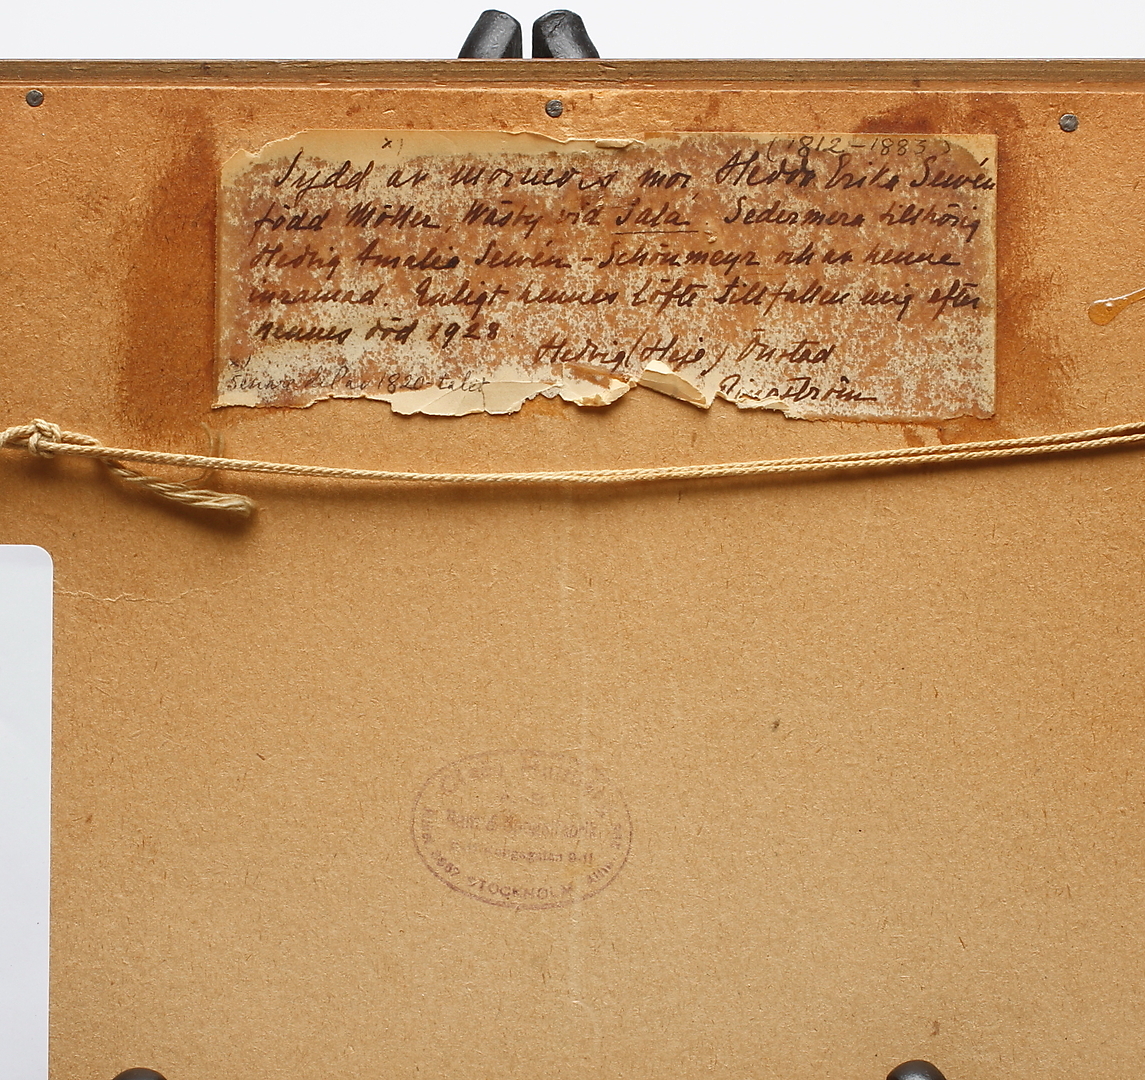 x) (1812–1883)
Sydd av mormors mor, Hedda Erika Sewén
född Möller, Wäsby vid Sala. Sedermera tillhörig
Hedvig Amalia Sewén-Schönmeyr och av henne
inramad. Enligt hennes löfte tillfallen mig efter
hennes död 1928.
Hedvig (Heje) Önstad
x) Senare del av 1820-talet
Ram- &
9-11
STOCKHOLM